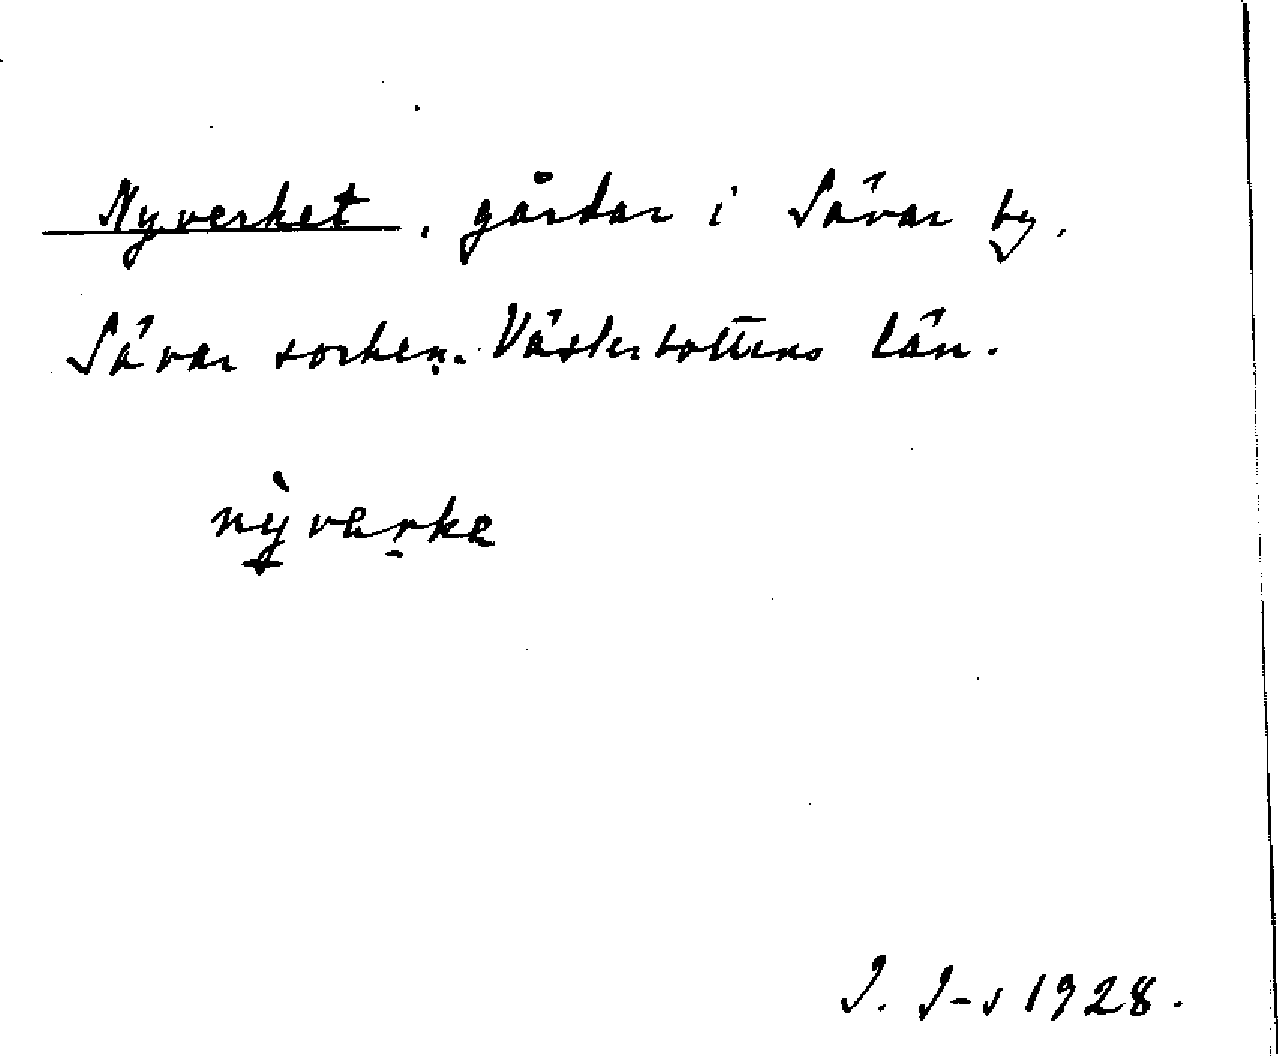 Nyverket, gårdar i Sävar by,
Sävar socken. Västerbottens län.
nỳverke
J. J-s 1928.